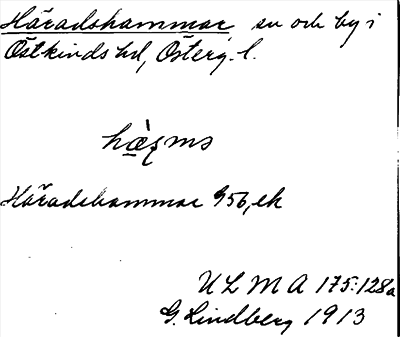 Häradshammar, sn och by i
Östkinds hd, Österg. l.
Häradshammar G56, ek
ULMA 175:128a
G. Lindberg 1913